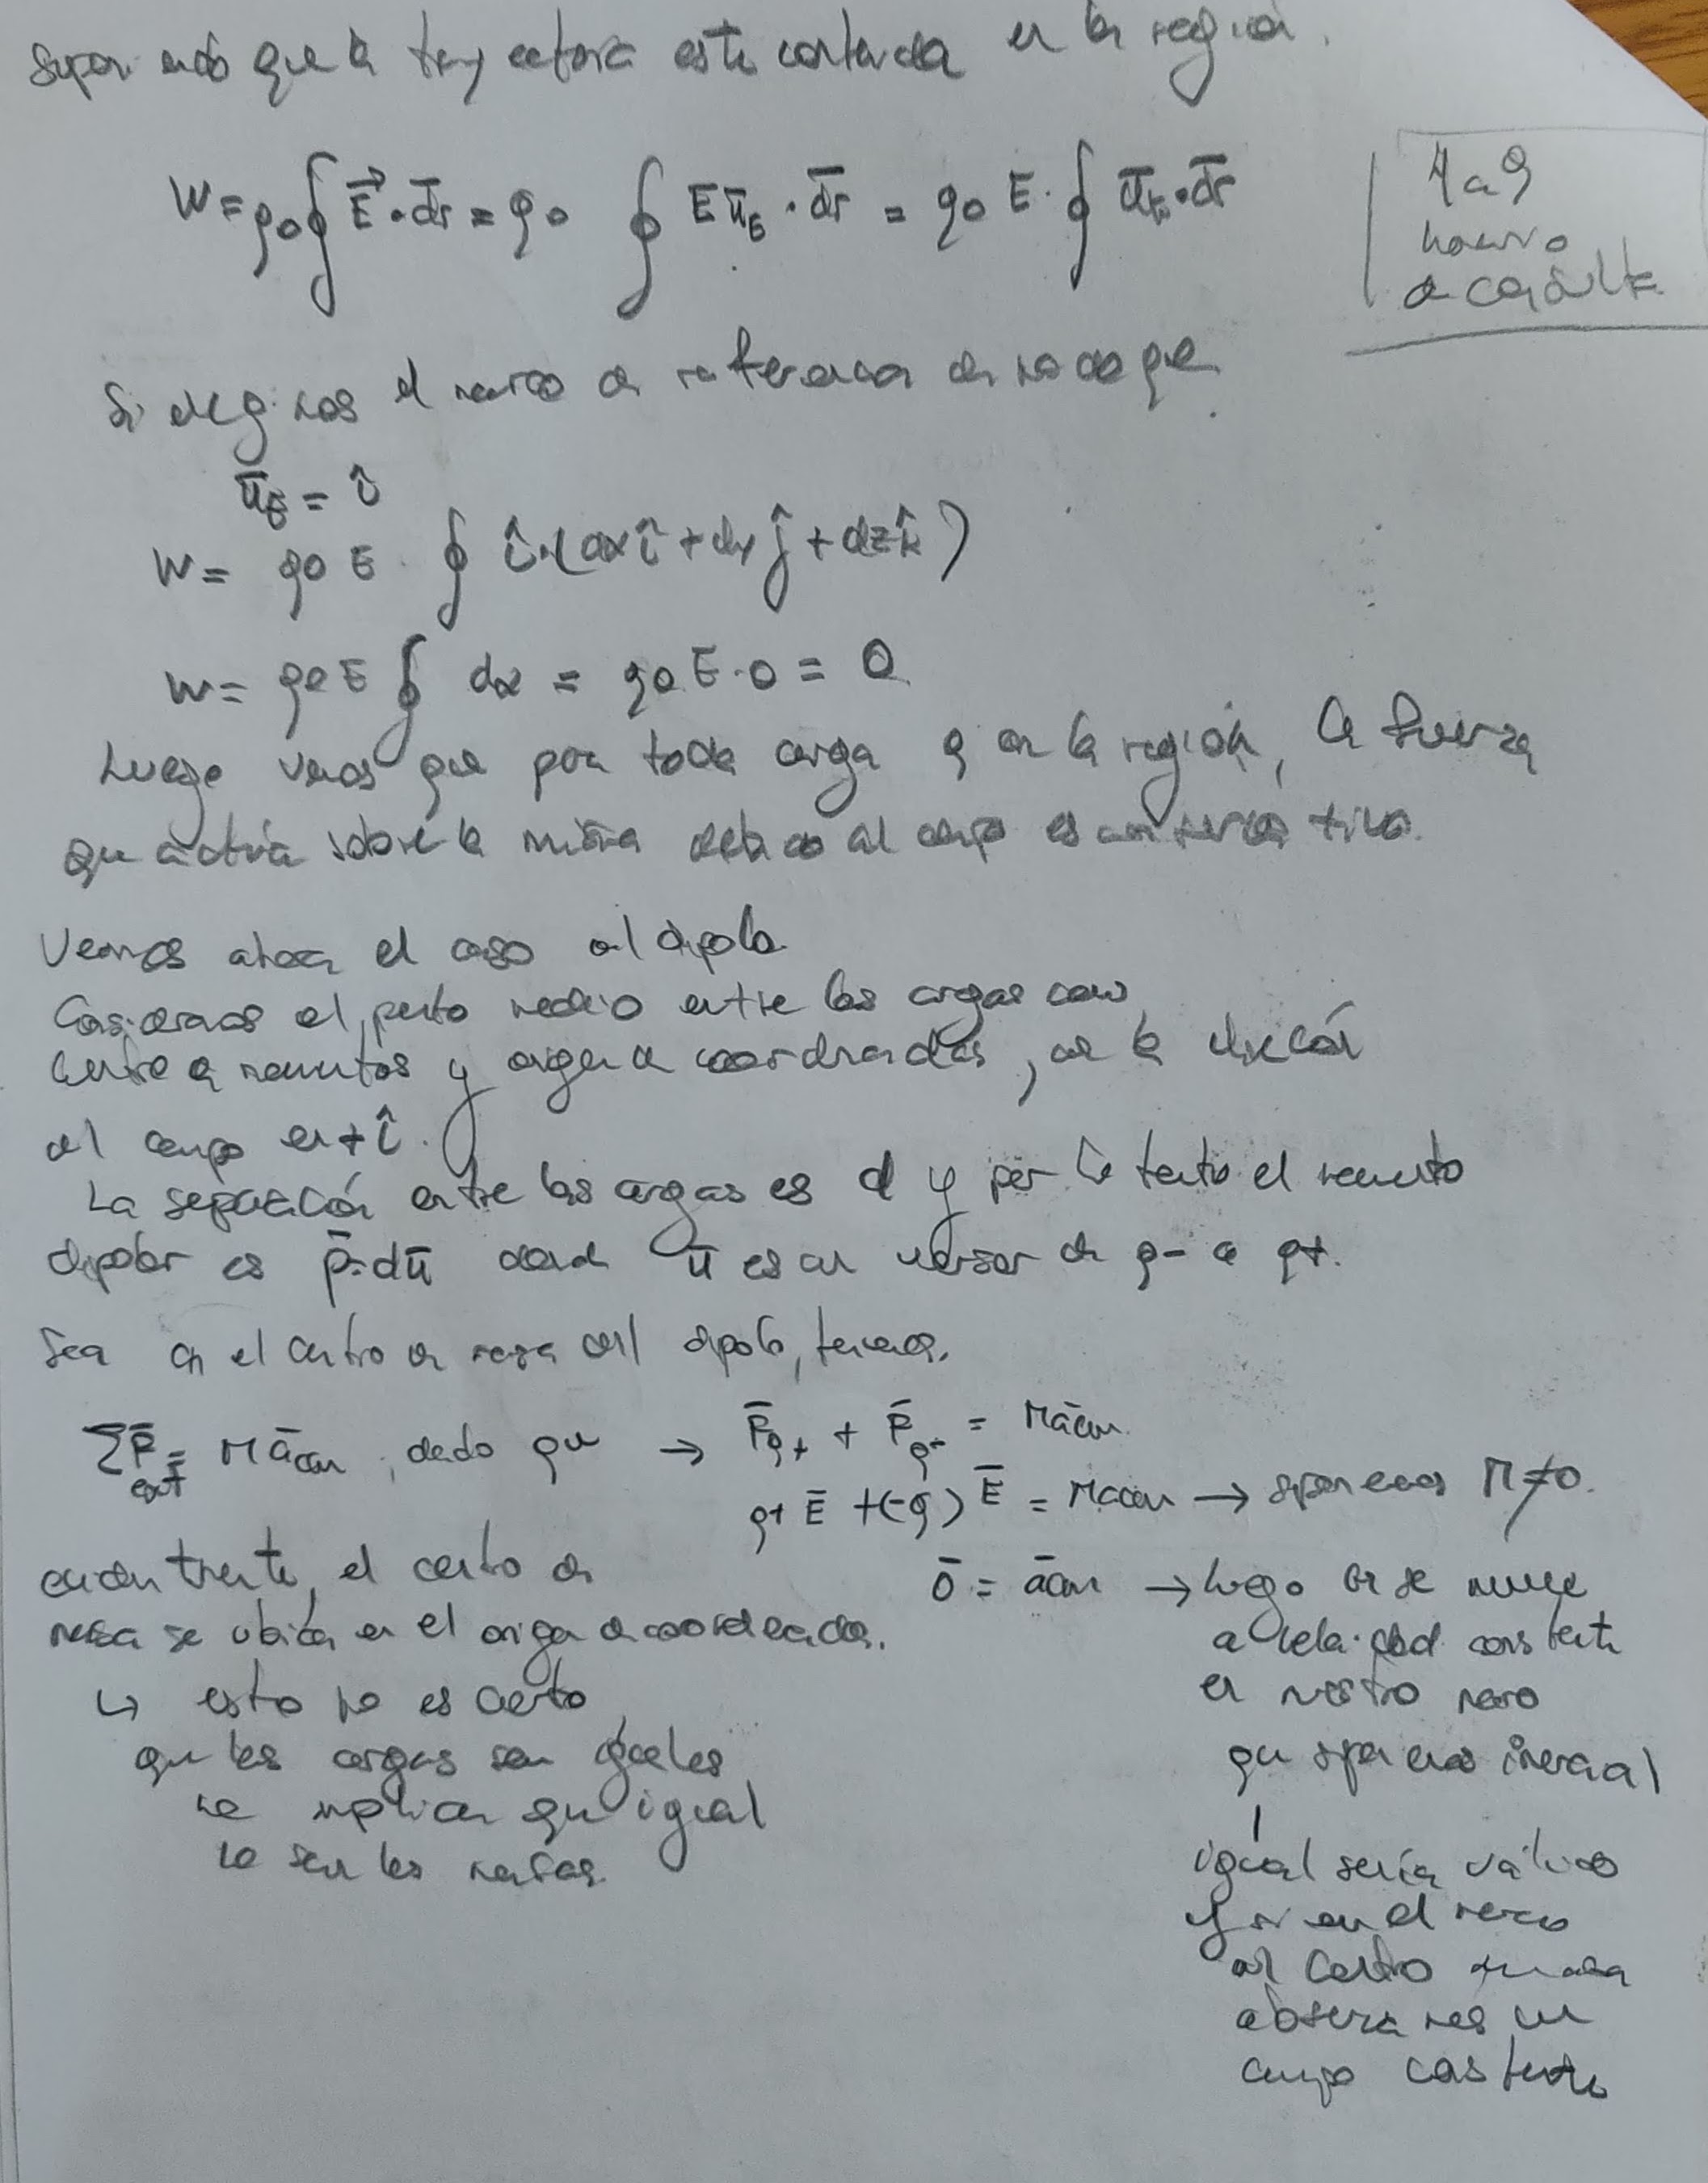 Suponiendo que la trayectoria este contenida en la región.
W = q0 ∮ E⃗ · d̄r = q0 ∮ E ūE · d̄r = q0 E · ∮ ūE · d̄r
4 a 9
horario
de consulta
Si elegimos el marco de referencia de modo que
ūE = î
W = q0 E ∮ î · (dx î + dy ĵ + dz k̂)
W = q0 E ∮ dx = q0 E · 0 = 0
Luego vemos que para toda carga q en la región, la fuerza
que actúa sobre la misma debido al campo es conservativa.
Veamos ahora el caso del dipolo
Consideramos el punto medio entre las cargas como
centro de momentos y origen de coordenadas, con la dirección
del campo en +î.
La separación entre las cargas es d y por lo tanto el momento
dipolar es p̄ = dū donde ū es un versor de q- a q+.
Sea cm el centro de masa del dipolo, tenemos.
ΣF̄ext = M ācm, dado que → F̄q+ + F̄q- = M ācm
q+ Ē + (-q) Ē = M ācm → suponemos M≠0.
0̄ = ācm → luego cm se mueve
a velocidad constante
en nuestro marco
que suponemos inercial
igual sería válido
si en el marco
del centro de masa
observamos un
campo constante
el centro de
masa se ubica en el origen de coordenadas.
↳ esto no es cierto
que las cargas sean iguales
no implica que igual
lo sean las masas.